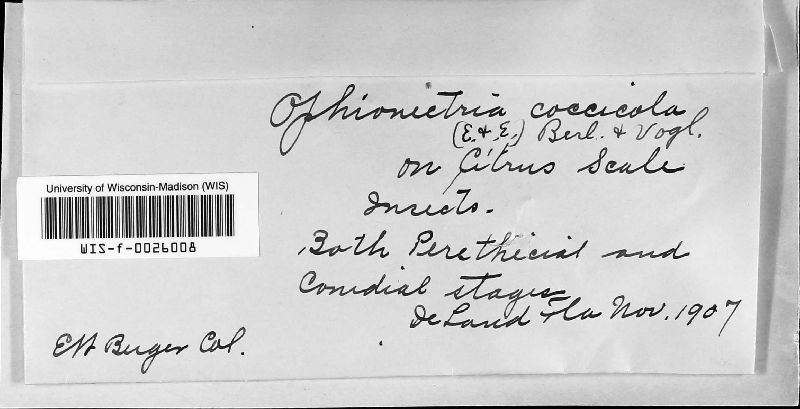 Ophionectria coccicola
(E. & E.) Berl. & Vogl.
on Citrus Scale
Insects.
University of Wisconsin-Madison (WIS)
WIS-f-0026008
Both Perethicial and
Conidial stages
DeLand Fla Nov. 1907
EW Berger Col.